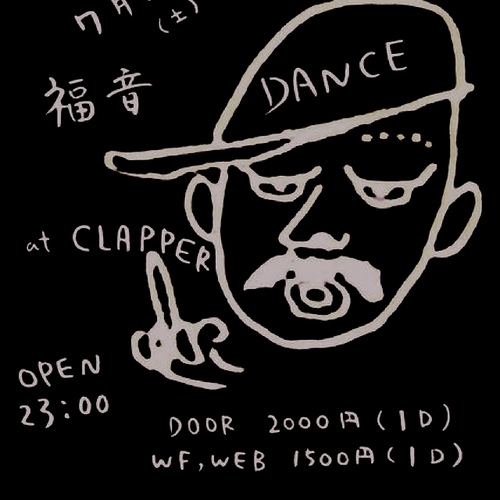 7月
(土)
福音
DANCE
at CLAPPER
OPEN
23:00
DOOR 2000円(1D)
WF,WEB 1500円(1D)